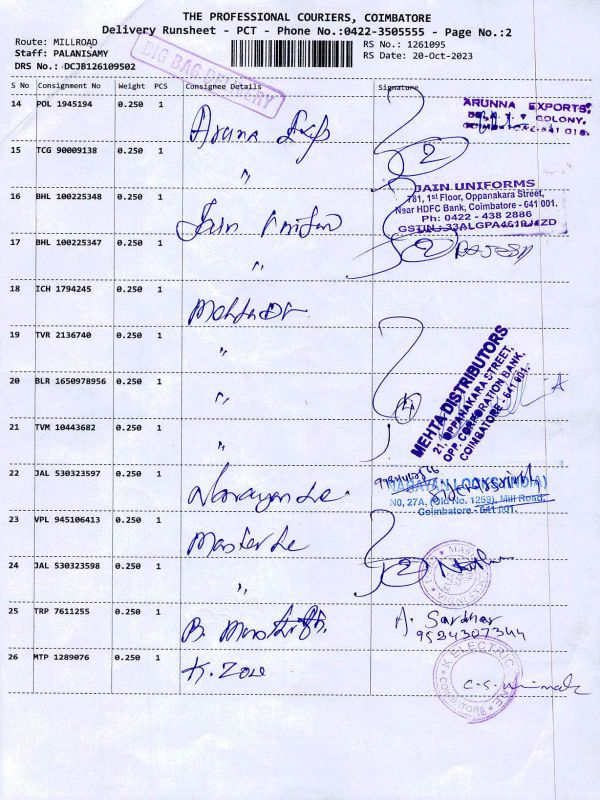 THE PROFESSIONAL COURIERS, COIMBATORE
Delivery Runsheet - PCT - Phone No.:0422-3505555 - Page No.:2
Route: MILLROAD
RS No.: 1261095
Staff: PALANISAMY
RS Date: 20-Oct-2023
DRS No.: DCJB126109502
BIG BAG DELIVERY
S No Consignment No Weight PCS Consignee Details Signature
14 POL 1945194 0.250 1 Aruna Exp
ARUNNA EXPORTS,
COLONY,
15 TCG 90009138 0.250 1 "
2
16 BHL 100225348 0.250 1 Jain Unifom
JAIN UNIFORMS
781, 1st Floor, Oppanakara Street,
Near HDFC Bank, Coimbatore - 641 001.
Ph: 0422 - 438 2886
17 BHL 100225347 0.250 1 "
2
18 ICH 1794245 0.250 1 Mehta Dr
19 TVR 2136740 0.250 1 "
20 BLR 1650978956 0.250 1 "
4
MEHTA DISTRIBUTORS
21, OPPANAKARA STREET,
OPP. CORPORATION BANK,
COIMBATORE - 641 001.
21 TVM 10443682 0.250 1 "
22 JAL 530323597 0.250 1 Narayan Le
NO, 27A, (Old No. 1259), Mill Road,
Coimbatore - 641 001.
23 VPL 945106413 0.250 1 Master Le
24 JAL 530323598 0.250 1 "
2
25 TRP 7611255 0.250 1 B.
A. Sardhar
26 MTP 1289076 0.250 1 K. Zone
K ELECTRIC
COIMBATORE